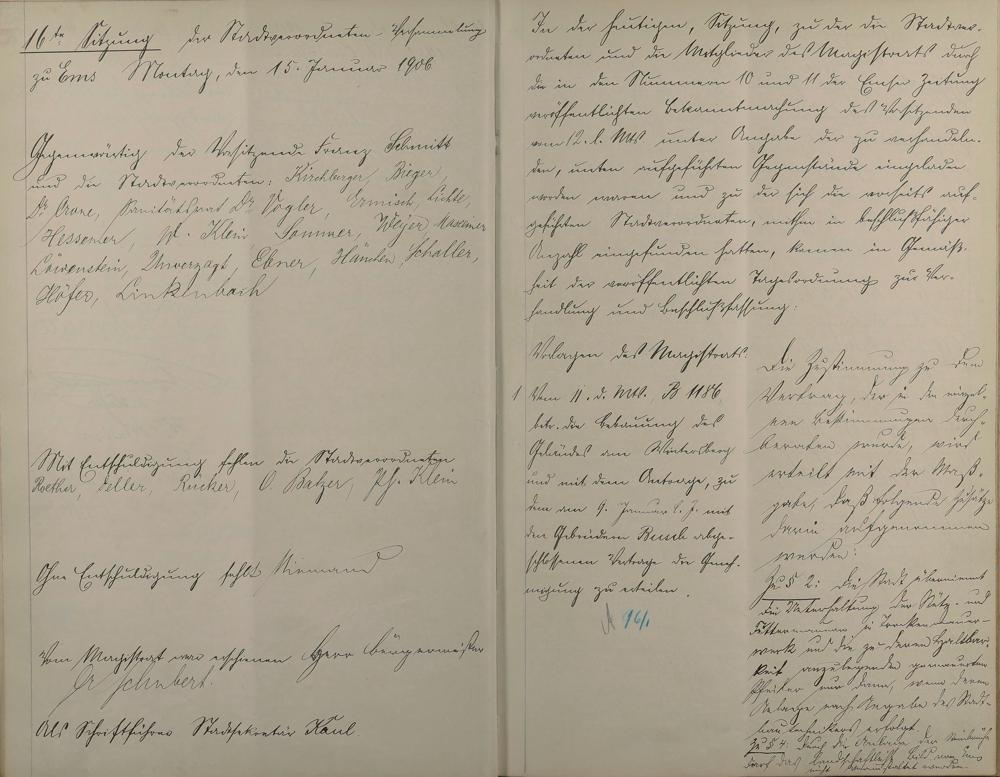 16te Sitzung der Stadtverordneten-Versammlung
zu Ems Montag, den 15. Januar 1906
Gegenwärtig der Vorsitzende Franz Schmitt
und die Stadtverordneten: Kirchberger, Rieger,
Dr Orone, Sanitätsrat Dr Vogler, Ermisch, Lichte,
Hessenter, W. Klein, Sommer, Weijer
Löwenstein, Unverzagt, Ebner, Hänchen, Schaller,
Höfer, Linkenbach
Mit Entschuldigung fehlen die Stadtverordneten
Roether, Rücker, O. Balzer, Ph. Klein
Ohne Entschuldigung fehlt Niemand
Vom Magistrat war erschienen Herr Bürgermeister
Dr Schubert.
Als Schriftführer Stadtsekretär Kaul.
In der heutigen Sitzung, zu der die Stadtver-
ordneten und die Mitglieder des Magistrats durch
die in den Nummern 10 und 11 der Emser Zeitung
veröffentlichten Bekanntmachung des Vorsitzenden
vom 12. l. Mts. unter Angabe der zu verhandeln-
den, unten aufgeführten Gegenstände eingeladen
worden waren und zu der sich die vorseits auf-
geführten Stadtverordneten, mithin in beschlußfähiger
Anzahl eingefunden hatten, kamen in Gemäß-
heit der veröffentlichten Tagesordnung zur Ver-
handlung und Beschlußfassung:
Vorlagen des Magistrats:
1 Vom 11. d. Mts. B 1186
betr. die Bebauung des
Geländes am Wintersberg
und mit dem Antrage, zu
dem am 9. Januar l. J. mit
den Gebrüdern Busch abge-
schlossenen Vertrage die Geneh-
migung zu erteilen.
Die Zustimmung zu dem
Vertrag, der in den einzel-
nen Bestimmungen durch-
beraten wurde, wird
erteilt mit der Maß-
gabe, daß folgende Zusätze
darin aufgenommen
werden:
Zu § 2: Die Stadt übernimmt
die Unterhaltung der Stütz- und
Futtermauern in Trockenmauer-
werk und die zu deren Haltbar-
keit anzulegenden gemauerten
Pfeiler nur dann, wenn deren
Anlage nach Angabe des Stadt-
bautechnikers erfolgt.
Zu § 4: Durch die Anlage der Steinbrüche
darf das landschaftliche Bild von Ems
nicht verunstaltet werden.